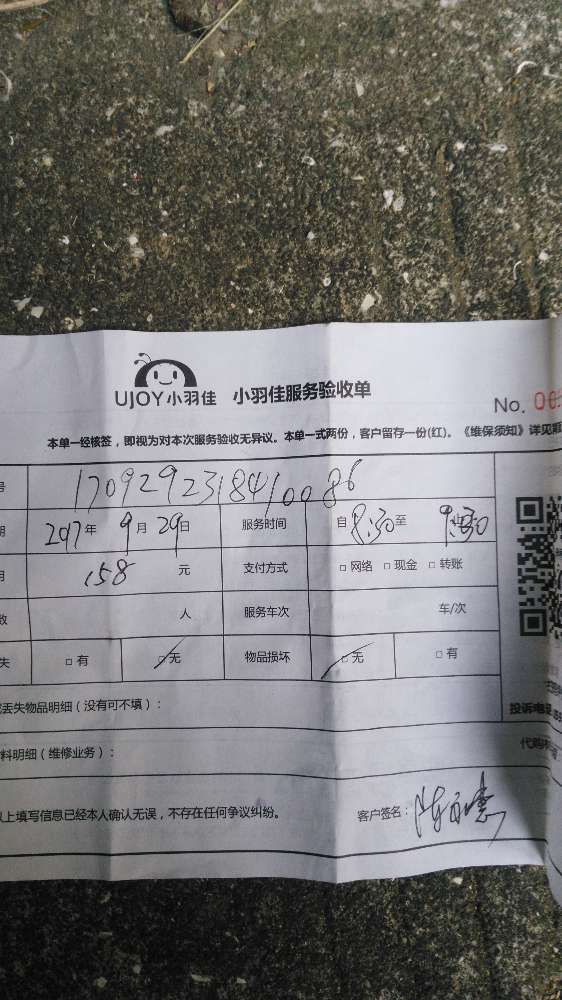 UJOY小羽佳 小羽佳服务验收单
No. 00
本单一经核签，即视为对本次服务验收无异议。本单一式两份，客户留存一份(红)。《维保须知》详见
号 1709292318410086
期 2017年 9月29日 服务时间 自 8:30 至 9:30 止
用 158 元 支付方式 □ 网络 □ 现金 □ 转账
数 人 服务车次 车/次
失 □ 有 □ 无 物品损坏 □ 无 □ 有
丢失物品明细（没有可不填）：
投诉电
料明细（维修业务）：
代购
以上填写信息已经本人确认无误，不存在任何争议纠纷。 客户签名：